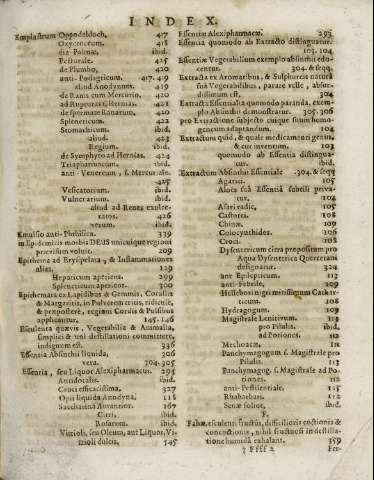 INDEX.
Emplastrum Oppodeldoch, 417
Oxycroceum, 418
dia Palmæ, ibid.
Pectorale, 425
de Plumbo, 420
anti-Podagricum, 417. 419
aliud Anodynum, 419
de Rana cum Mercurio, 420
ad Rupturas s. Hernias, 423
de spermate Ranarum, 420
Spleneticum, 422
Stomachicum, ibid.
aliud 423
Regium, ibid.
de Symphyto ad Hernias, 424
Triapharmacum, ibid.
anti-Venereum, s. Mercuriale, 425
Vesicatorium, ibid.
Vulnerarium, ibid.
aliud ad Renes exulceratos, 426
verum, ibid.
Emulsio anti-Phthisica, 339
in Epidemiis morbis DEUS unicuique regioni præsidium voluit, 209
Epithema ad Erysipelata, & Inflammationes alias, 129
Hepaticum aperiens, 299
Spleneticum aperiens, 300
Epithemata ex Lapidibus & Gemmis, Corallis
& Margaritis, in Pulverem tritis, ridiculè,
& præposterè, regioni Cordis & Pulsibus
applicantur, 145. 146
Esculenta quævis, Vegetabilia & Animalia,
simplici & uni destillationi committere,
indignum est, 336
Essentia Absinthii liquida, 306
vera, 304. 305
Essentia, seu Liquor Alexipharmacus, 295
Antidotalis, ibid.
Croci efficacissima, 327
Opii liquida Anodyna, 118
Saccharina Autantior, 167
Citri, ibid.
Rosarum, ibid.
Vitrioli, seu Oleum, aut Liquor, Vitrioli dulcis, 145
Essentiæ Alexipharmacæ, 295
Essentia quomodo ab Extracto distinguatur,
103. 104
Essentiæ Vegetabilium exemplo absinthii edocentur, 304. & seqq.
Extracta ex Aromatibus, & Sulphureis natura
suâ Vegetabilibus, parare velle, absurdissimum est, 304
Extracta Essentialia quomodo paranda, exemplo Absinthii demonstratur, 305. 306
pro Extractione subjecto cuique suum homogeneum adaptandum, 104
Extractum quid, & quale medicamenti genus,
& cur inventum, 103
quomodo ab Essentia distinguatur, ibid.
Extractum Absinthii Essentiale, 304. & seqq.
Agarici, 105
Aloes suâ Essentiâ subtili privatur, 104
Asari radic, 105
Castorei, 108
Chinæ, 108
Colocynthides, 106
Croci, 108
Dysentericum citra propositum pro
Aqua Dysenterica Quercetani
designatur, 324
ant-Epilepticum, 113
anti-Febrile, 109
Hellebori nigri mitissimum Catharticum, 108
Hydragogum, 109
Magistrale Lenitivum, 110
pro Pilulis, ibid.
ad Potiones, 112
Mechoacæ, 111
Panchymagogum s. Magistrale pro
Pilulis, 113
Panchymagog. s. Magistrale ad Potiones, 112
anti-Pestilentiale, 115
Rhabarbari, 112
Senæ folior, ibid.
F.
Fabæ, esculenti fructus, difficilioris coctionis &
concoctionis, nihil fructuosi in destillatione humidâ exhalant, 359
? Ffff 2 Fer-